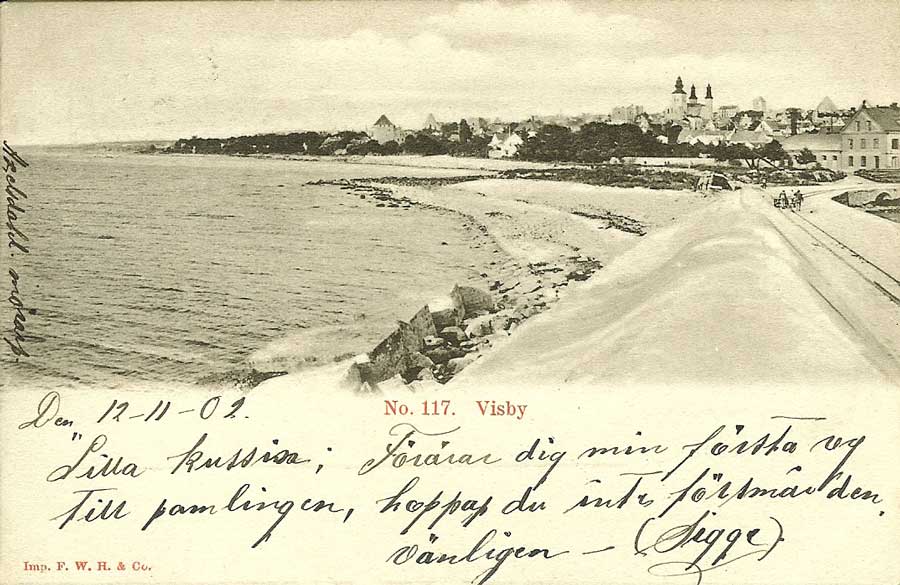 Den 12-11-02.
No. 117. Visby
"Lilla kussisa; Förärar dig min första vy
till samlingen, hoppas du inte försmår den.
vänligen — (Sigge).
Imp. F. W. H. & Co.